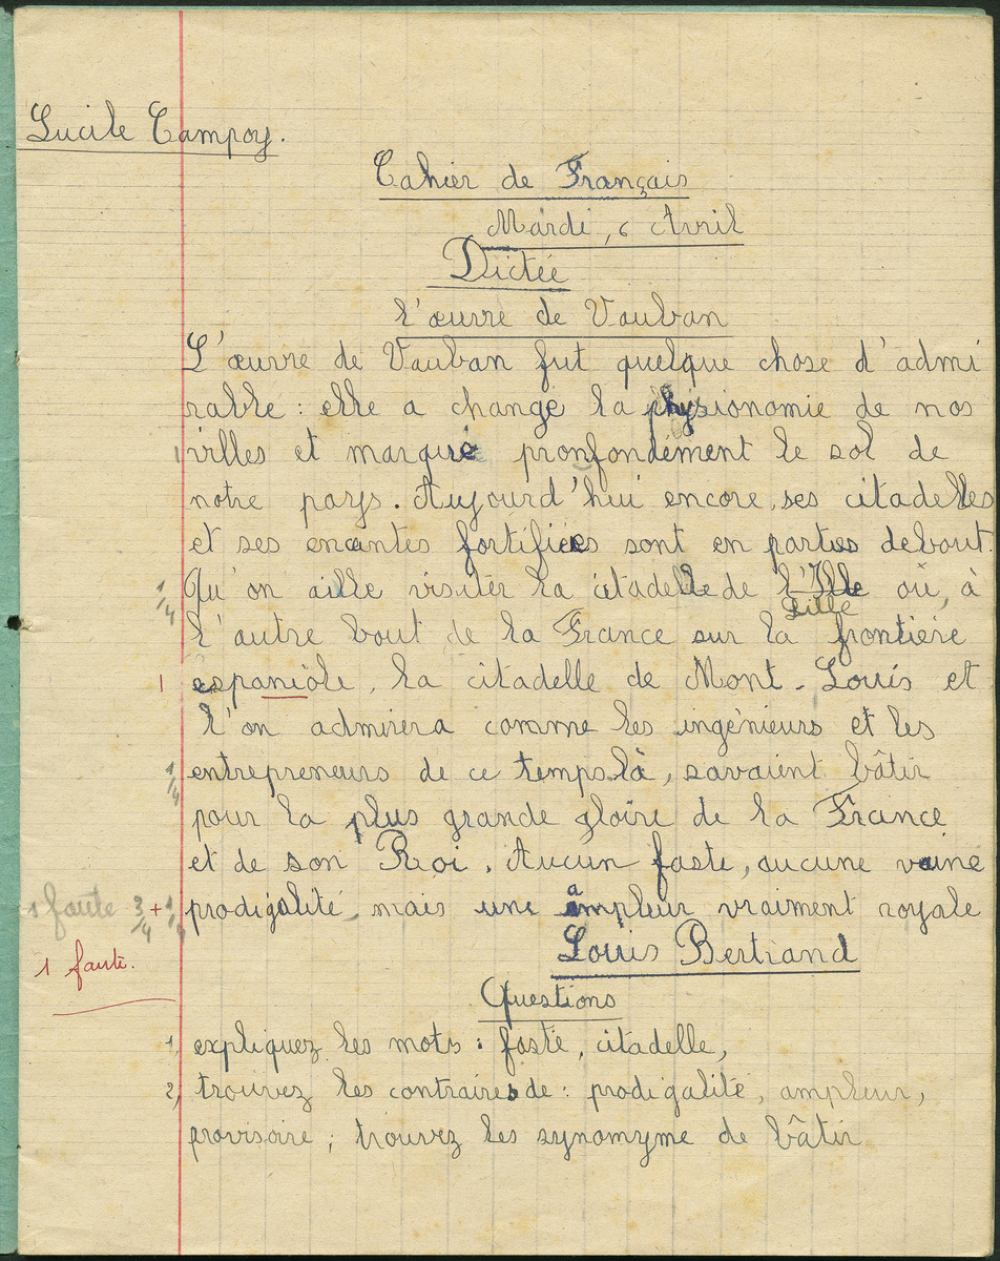 Lucile Campoy.
Cahier de Français
Mardi, 6 Avril
Dictée
l'œuvre de Vauban
L'œuvre de Vauban fut quelque chose d'admi
rable : elle a changé la physionomie de nos
1 villes et marqué pronfondément le sol de
notre pays. Aujourd'hui encore, ses citadelles
et ses enceintes fortifiées sont en parties debout.
1/4 Qu'on aille visiter la citadelle de l'Ille où, à
Lille
l'autre bout de la France sur la frontière
1 espaniole, la citadelle de Mont-Louis et
l'on admirera comme les ingénieurs et les
1/4 entrepreneurs de ce temps là, savaient bâtir
pour la plus grande gloire de la France
et de son Roi. Aucun faste, aucune vaine
1 faute 3/4 + 1/4 prodigalité, mais une ampleur vraiment royale
Louis Bertrand
1 faute.
Questions
1, expliquez les mots : faste, citadelle,
2, trouvez les contraires de : prodigalité, ampleur,
provisoire ; trouvez les synomyme de bâtir